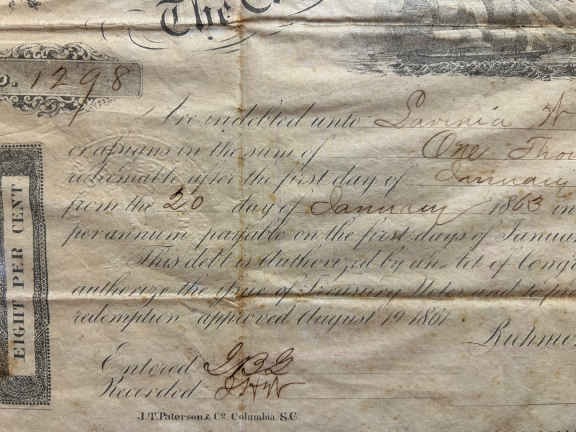 The C
No. 1298
be indebted unto Lavinia W
or assigns in the sum of One Thou
redeemable after the first day of January
from the 20 day of January 1863 in
per annum payable on the first days of Januar
This debt is authorized by an Act of Cong
authorize the issue of Treasury Notes and to p
redemption approved August 19 1861.
Richmo
EIGHT PER CENT
Entered J B G
Recorded J H W
J.T. Paterson & Co. Columbia S.C.